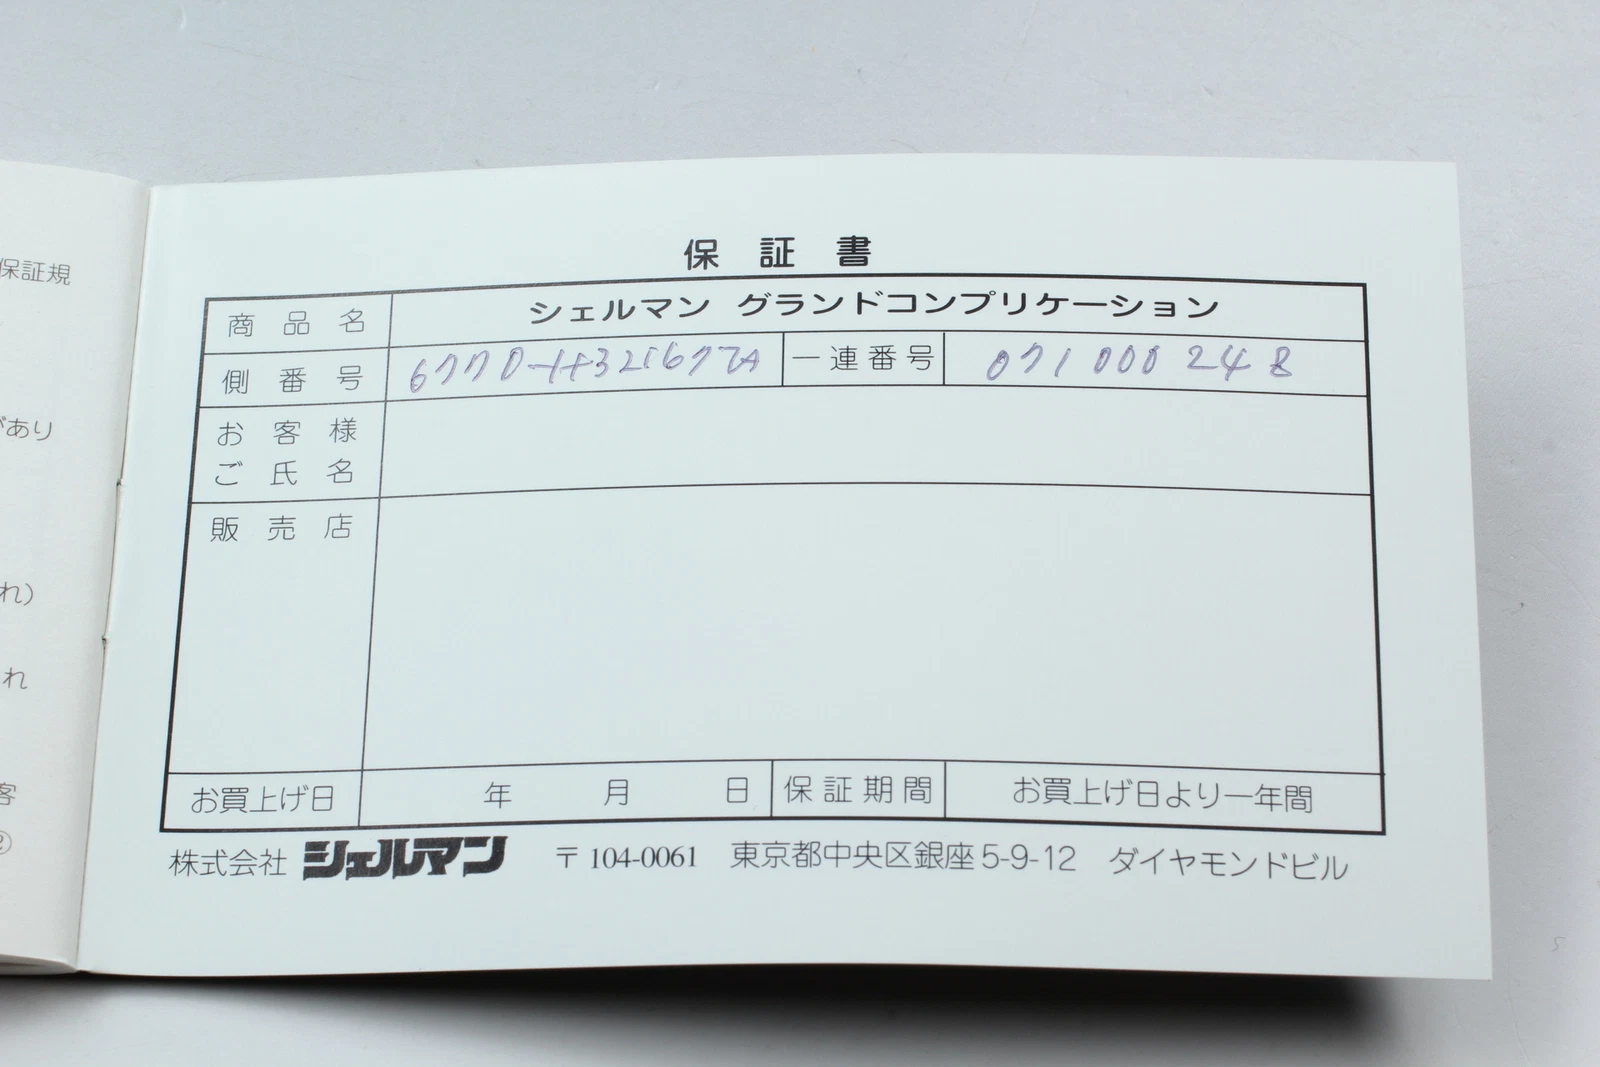 保証規
があり
れ）
れ
客
②
保証書
商品名 シェルマン グランドコンプリケーション
側番号 6770-H321677TA 一連番号 071000248
お客様
ご氏名
販売店
お買上げ日 年 月 日 保証期間 お買上げ日より一年間
株式会社 シェルマン 〒104-0061 東京都中央区銀座5-9-12 ダイヤモンドビル